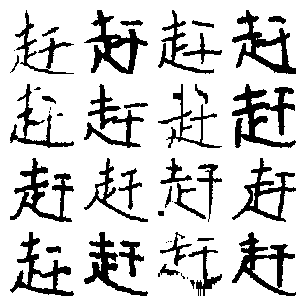 赶赶赶赶
赶赶赶赶
赶赶赶赶
赶赶赶赶